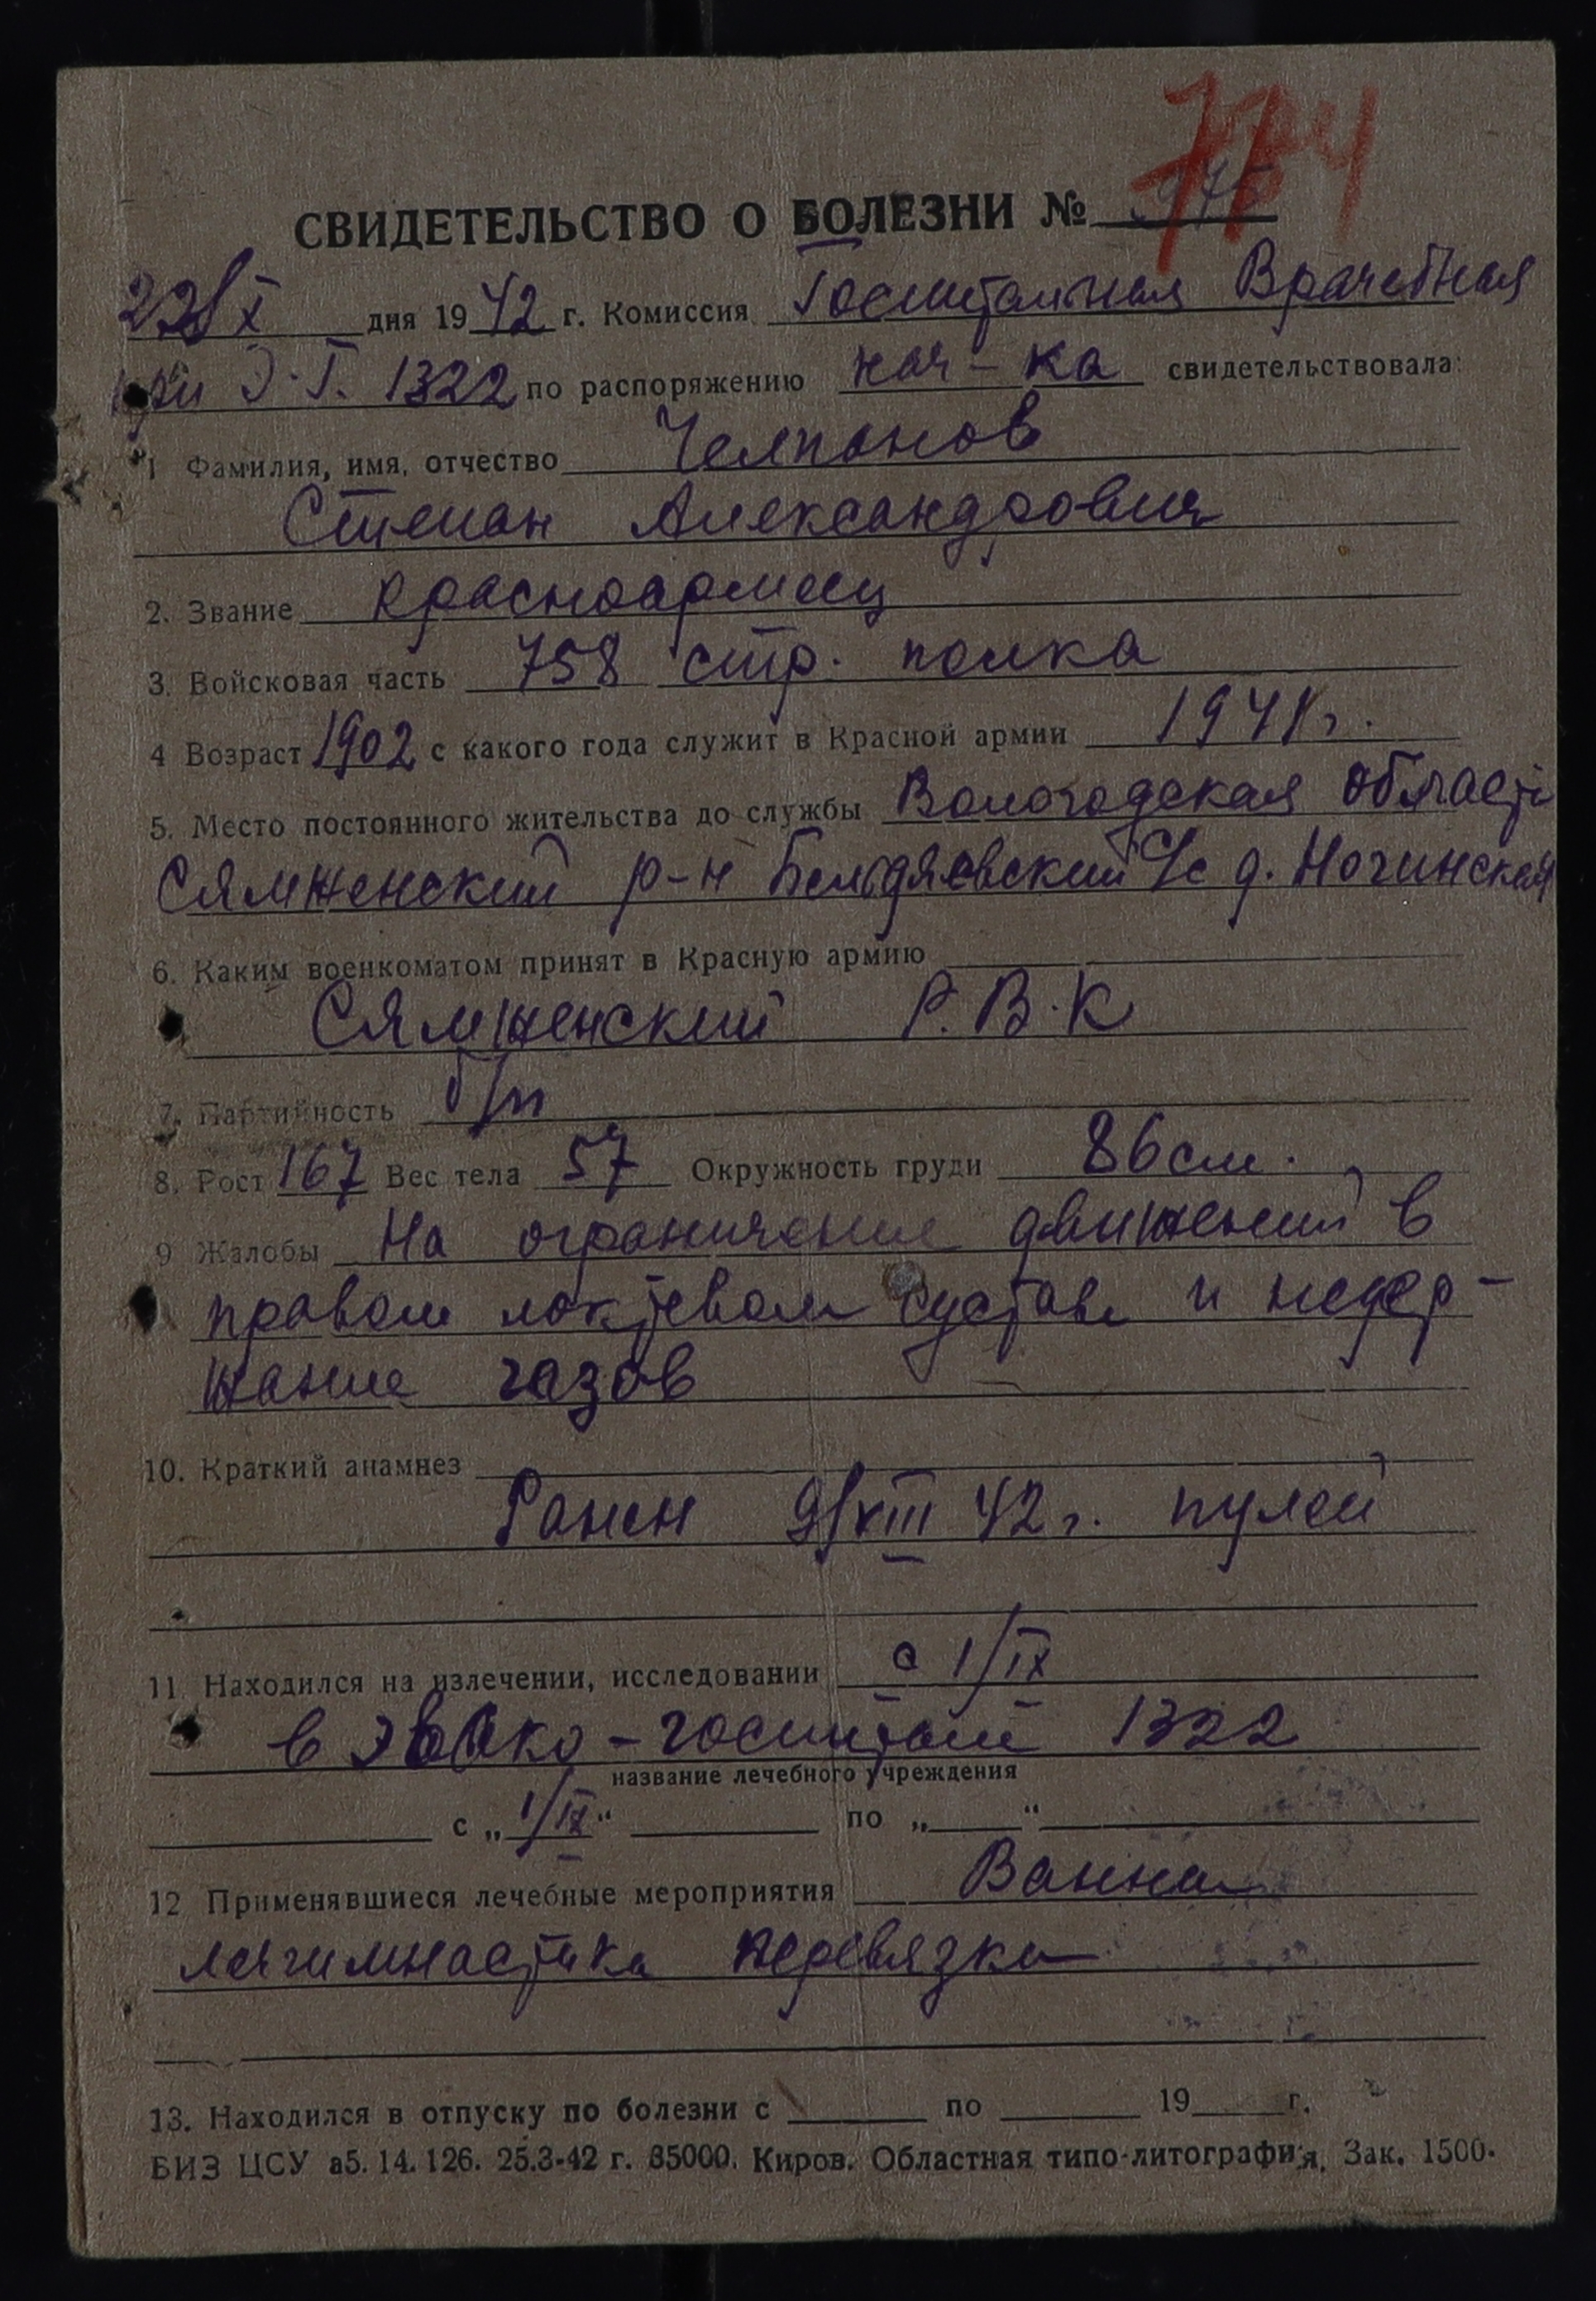 774
СВИДЕТЕЛЬСТВО О БОЛЕЗНИ № 975
22/X дня 1942 г. Комиссия Госпитальная Врачебная
при Э.Г. 1322 по распоряжению нач-ка свидетельствовала:
1 Фамилия, имя, отчество Челпанов
Степан Александрович
2. Звание красноармеец
3. Войсковая часть 758 стр. полка
4 Возраст 1902 с какого года служит в Красной армии 1941 г.
5. Место постоянного жительства до службы Вологодская область
Сямженский р-н с/с д. Ногинская
6. Каким военкоматом принят в Красную армию
Сямженский Р.В.К
7. Партийность б/п
8. Рост 167 Вес тела 57 Окружность груди 86 см.
9 Жалобы На ограничение движений в
правом локтевом суставе и недер-
жание газов
10. Краткий анамнез
Ранен 9/VIII 42 г. пулей
11. Находился на излечении, исследовании с 1/IX
в эвако-госпитале 1322
название лечебного учреждения
с „1/IX“ по „ “
12 Применявшиеся лечебные мероприятия Ванны
лечгимнастика перевязки
13. Находился в отпуску по болезни с по 19 г.
БИЗ ЦСУ а5. 14. 126. 25.3-42 г. 85000. Киров. Областная типо-литография. Зак. 1500.